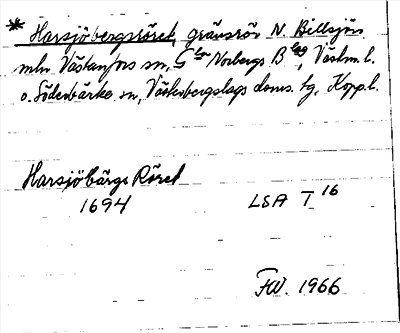 * Harsjöbergsröret, gränsrös N Billsjön
mln Västanfors sn, Gla Norbergs Blag, Västm. l.
o. Söderbärke sn, Västerbergslags doms. tg, Kopp. l.
Harsjöbärgs Röret
1694 LSA T 16
FW. 1966